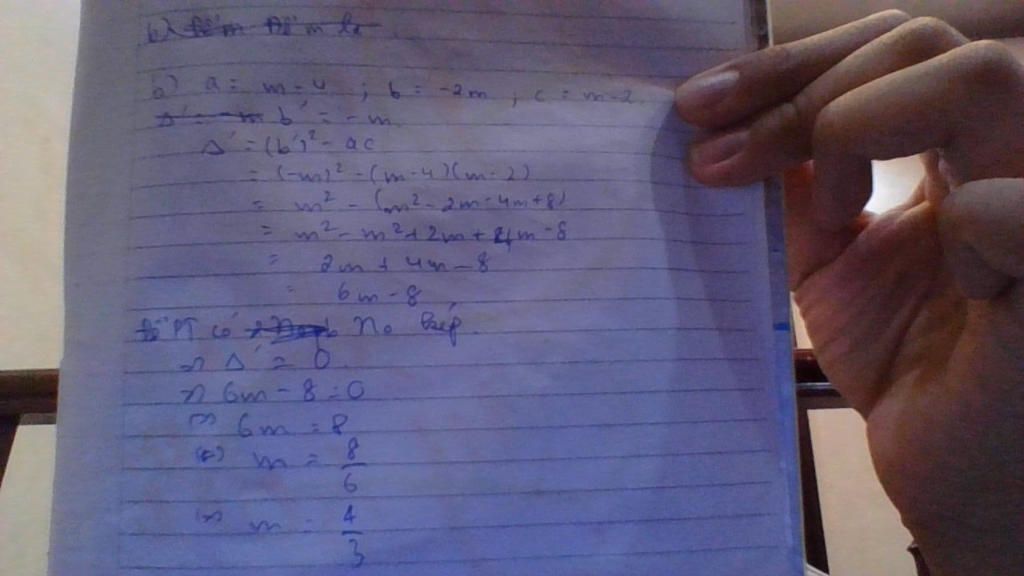 b)
b) a = m - 4 ; b = -2m ; c = m - 2
b' = -m
Δ' = (b')² - ac
= (-m)² - (m - 4)(m - 2)
= m² - (m² - 2m - 4m + 8)
= m² - m² + 2m + 4m - 8
= 2m + 4m - 8
= 6m - 8
PT có No kép.
=> Δ' = 0
=> 6m - 8 = 0
(=) 6m = 8
(=) m = 8/6
(=) m = 4/3